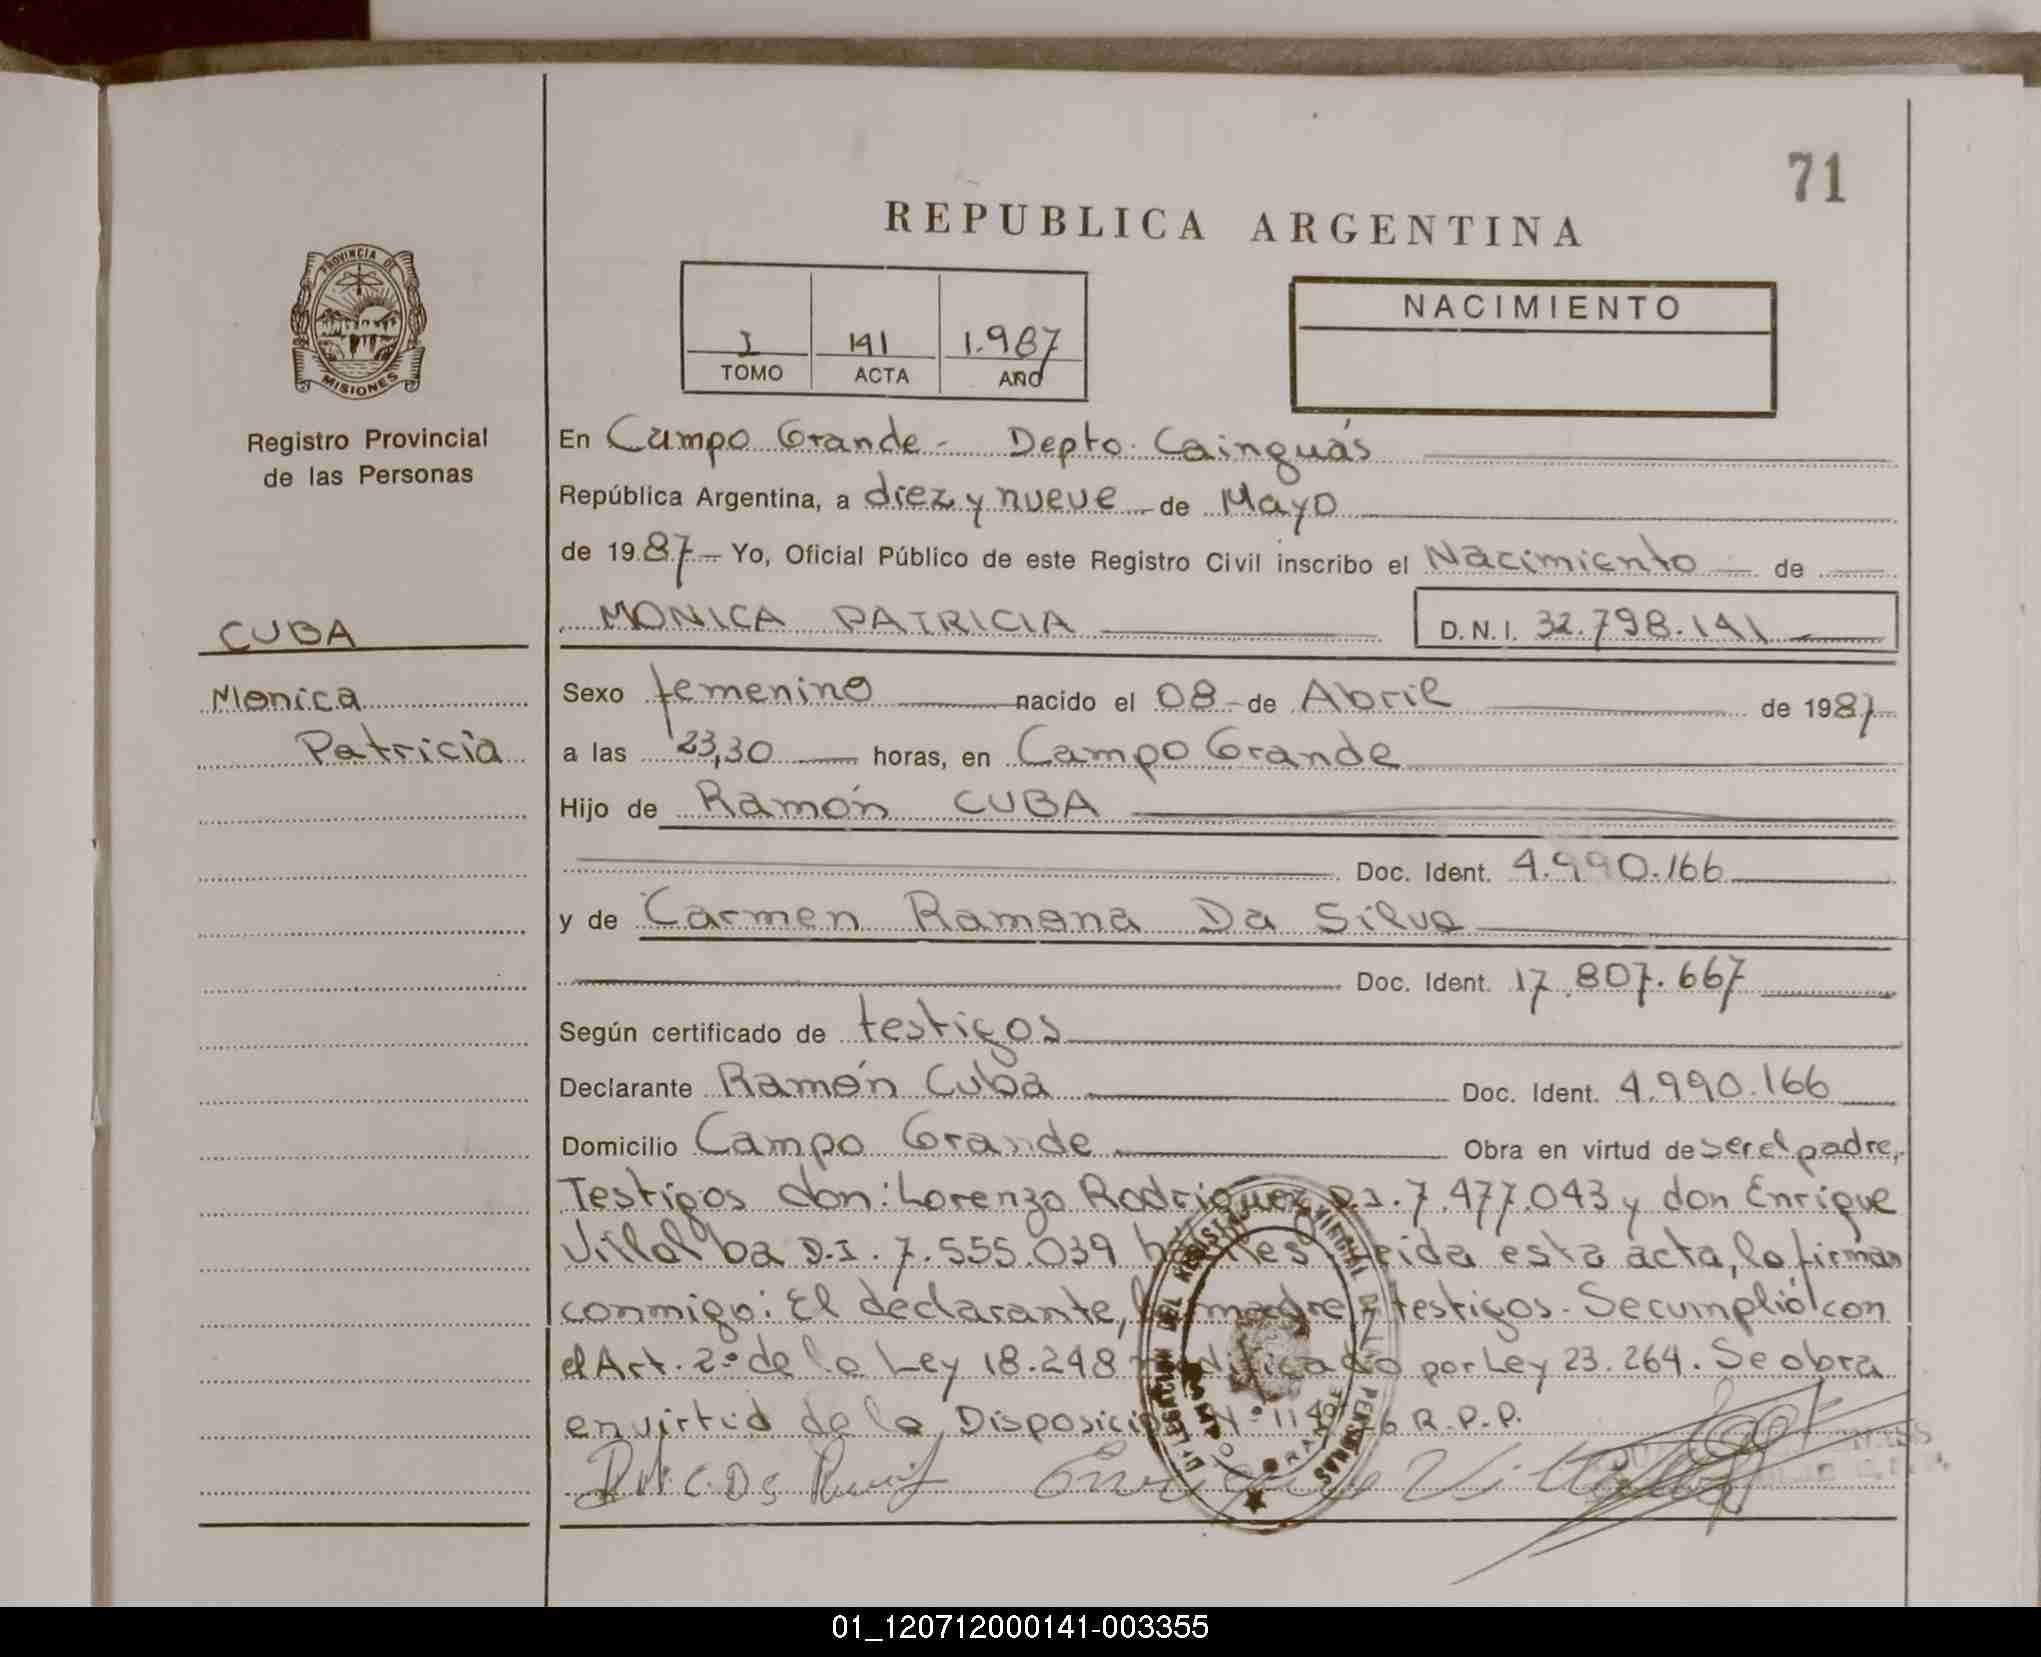 71
REPUBLICA ARGENTINA
PROVINCIA DE
MISIONES
Registro Provincial
de las Personas
I 141 1.987
TOMO ACTA AÑO
NACIMIENTO
En Campo Grande - Depto. Cainguás
República Argentina, a diez y nueve de Mayo
de 1987 Yo, Oficial Público de este Registro Civil inscribo el Nacimiento de
CUBA
MONICA PATRICIA D.N.I. 32.798.141
Monica
Patricia
Sexo femenino nacido el 08 de Abril de 1987
a las 23,30 horas, en Campo Grande
Hijo de Ramón CUBA
Doc. Ident. 4.990.166
y de Carmen Ramona Da Silva
Doc. Ident. 17.807.667
Según certificado de testigos
Declarante Ramón Cuba Doc. Ident. 4.990.166
Domicilio Campo Grande Obra en virtud de ser el padre,
Testigos don: Lorenzo Rodriguez D.I. 7.477.043 y don Enrique
Villalba D.I. 7.555.039 leida esta acta, la firman
conmigo: El declarante, la madre y testigos. Se cumplió con
el Art. 2º de la Ley 18.248 modificado por Ley 23.264. Se obra
en virtud de la Disposición Nº R.P.P.
DELEGACION DEL REGISTRO PROVINCIAL DE LAS PERSONAS
CAMPO GRANDE
Enrique Villalba
01_120712000141-003355